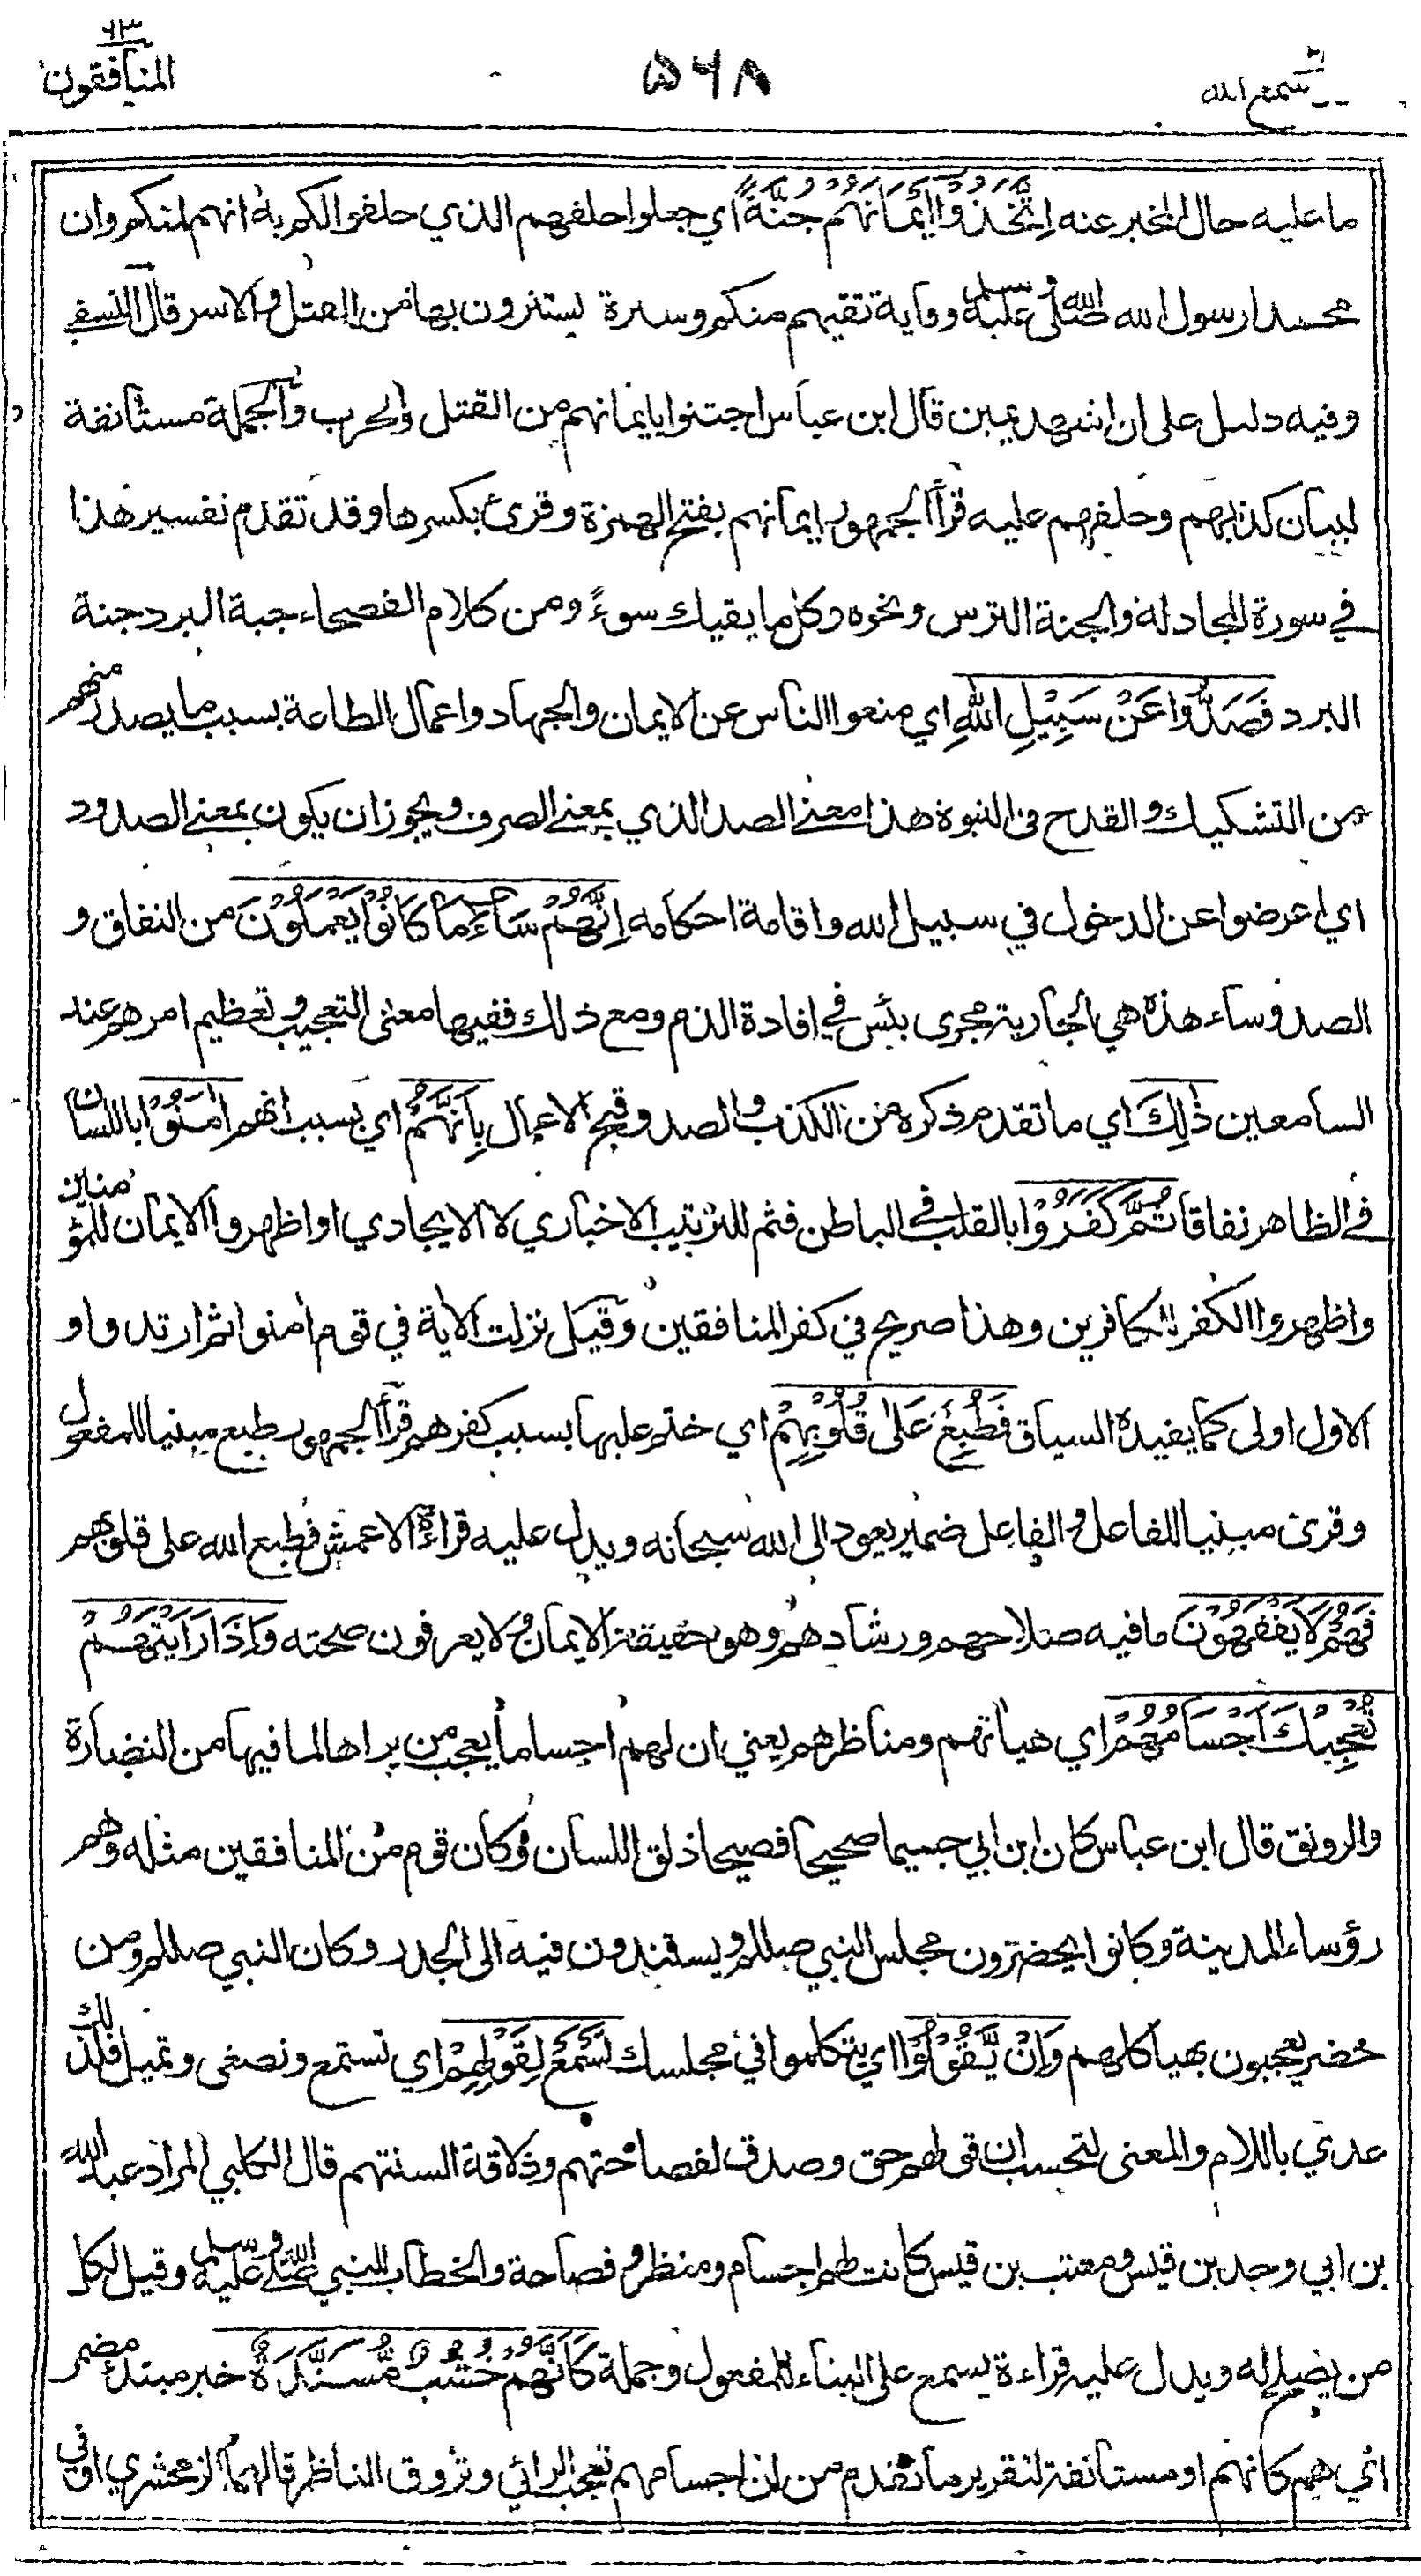 قد سمع الله ٢٨
٥٦٨
المنافقون ٦٣
ما عليه حال المخبر عنه اِتَّخَذُوْا اَيْمَانَهُمْ جُنَّةً اي جعلوا حلفهم الذي حلفوا لكم به انهم لمنكم وان
محمدا رسول الله صلى الله عليه وسلم وقاية تقيهم منكم وسترة يستترون بها من القتل والاسر قال النسفي
وفيه دليل على ان اشهد يمين قال ابن عباس اجتنوا بايمانهم من القتل والحرب والجملة مستأنفة
لبيان كذبهم وحلفهم عليه قرأ الجمهور ايمانهم بفتح الهمزة وقرئ بكسرها وقد تقدم تفسير هذا
في سورة المجادلة والجنة الترس ونحوه وكل ما يقيك سوءً ومن كلام الفصحاء جبة البرد جنة
البرد فَصَدُّوْا عَنْ سَبِيْلِ اللهِ اي منعوا الناس عن الايمان والجهاد واعمال الطاعة بسبب ما يصدر منهم
من التشكيك والقدح في النبوة هذا معنى الصد الذي بمعنى الصرف ويجوز ان يكون بمعنى الصدود
اي اعرضوا عن الدخول في سبيل الله واقامة احكامه اِنَّهُمْ سَآءَ مَا كَانُوْا يَعْمَلُوْنَ من النفاق و
الصد وساء هذه هي الجارية مجرى بئس في افادة الذم ومع ذلك ففيها معنى التعجيب وتعظيم امرهم عند
السامعين ذٰلِكَ اي ما تقدم ذكره من الكذب والصد وقبح الاعمال بِاَنَّهُمْ اي بسبب انهم اٰمَنُوْا باللسان
في الظاهر نفاقا ثُمَّ كَفَرُوْا بالقلب في الباطن فثم للترتيب الاخباري لا الايجادي او اظهروا الايمان للمؤمنين
واظهروا الكفر للكافرين وهذا صريح في كفر المنافقين وقيل نزلت الاية في قوم امنوا ثم ارتدوا و
الاول اولى كما يفيده السياق فَطُبِعَ عَلٰى قُلُوْبِهِمْ اي ختم عليها بسبب كفرهم قرأ الجمهور طبع مبنيا للمفعول
وقرئ مبنيا للفاعل والفاعل ضمير يعود الى الله سبحانه ويدل عليه قراءة الاعمش فطبع الله على قلوبهم
فَهُمْ لَا يَفْقَهُوْنَ ما فيه صلاحهم ورشادهم وهو حقيقة الايمان ولا يعرفون صحته وَاِذَا رَاَيْتَهُمْ
تُعْجِبُكَ اَجْسَامُهُمْ اي هيأتهم ومناظرهم يعني ان لهم اجساما يعجب من يراها لما فيها من النضارة
والرونق قال ابن عباس كان ابن ابي جسيما صحيحا فصيحا ذلق اللسان وكان قوم من المنافقين مثله وهم
رؤساء المدينة وكانوا يحضرون مجلس النبي صللم ويستندون فيه الى الجدر وكان النبي صللم ومن
حضر يعجبون بهياكلهم وَاِنْ يَّقُوْلُوْا اي يتكلموا في مجلسك تَسْمَعْ لِقَوْلِهِمْ اي تستمع وتصغى وتميل فلذلك
عدي باللام والمعنى لتحسب ان قولهم حق وصدق لفصاحتهم وذلاقة السنتهم قال الكلبي المراد عبد الله
بن ابي وجد بن قيس ومعتب بن قيس كانت لهم اجسام ومنظر وفصاحة والخطاب للنبي صلى الله عليه وسلم وقيل لكل
من يصلح له ويدل عليه قراءة يسمع على البناء للمفعول وجملة كَاَنَّهُمْ خُشُبٌ مُّسَنَّدَةٌ خبر مبتدء مضمر
اي هم كانهم او مستأنفة لتقرير ما تقدم من ان اجسامهم تعجب الرائي وتروق الناظر قالهما الزمخشري او في